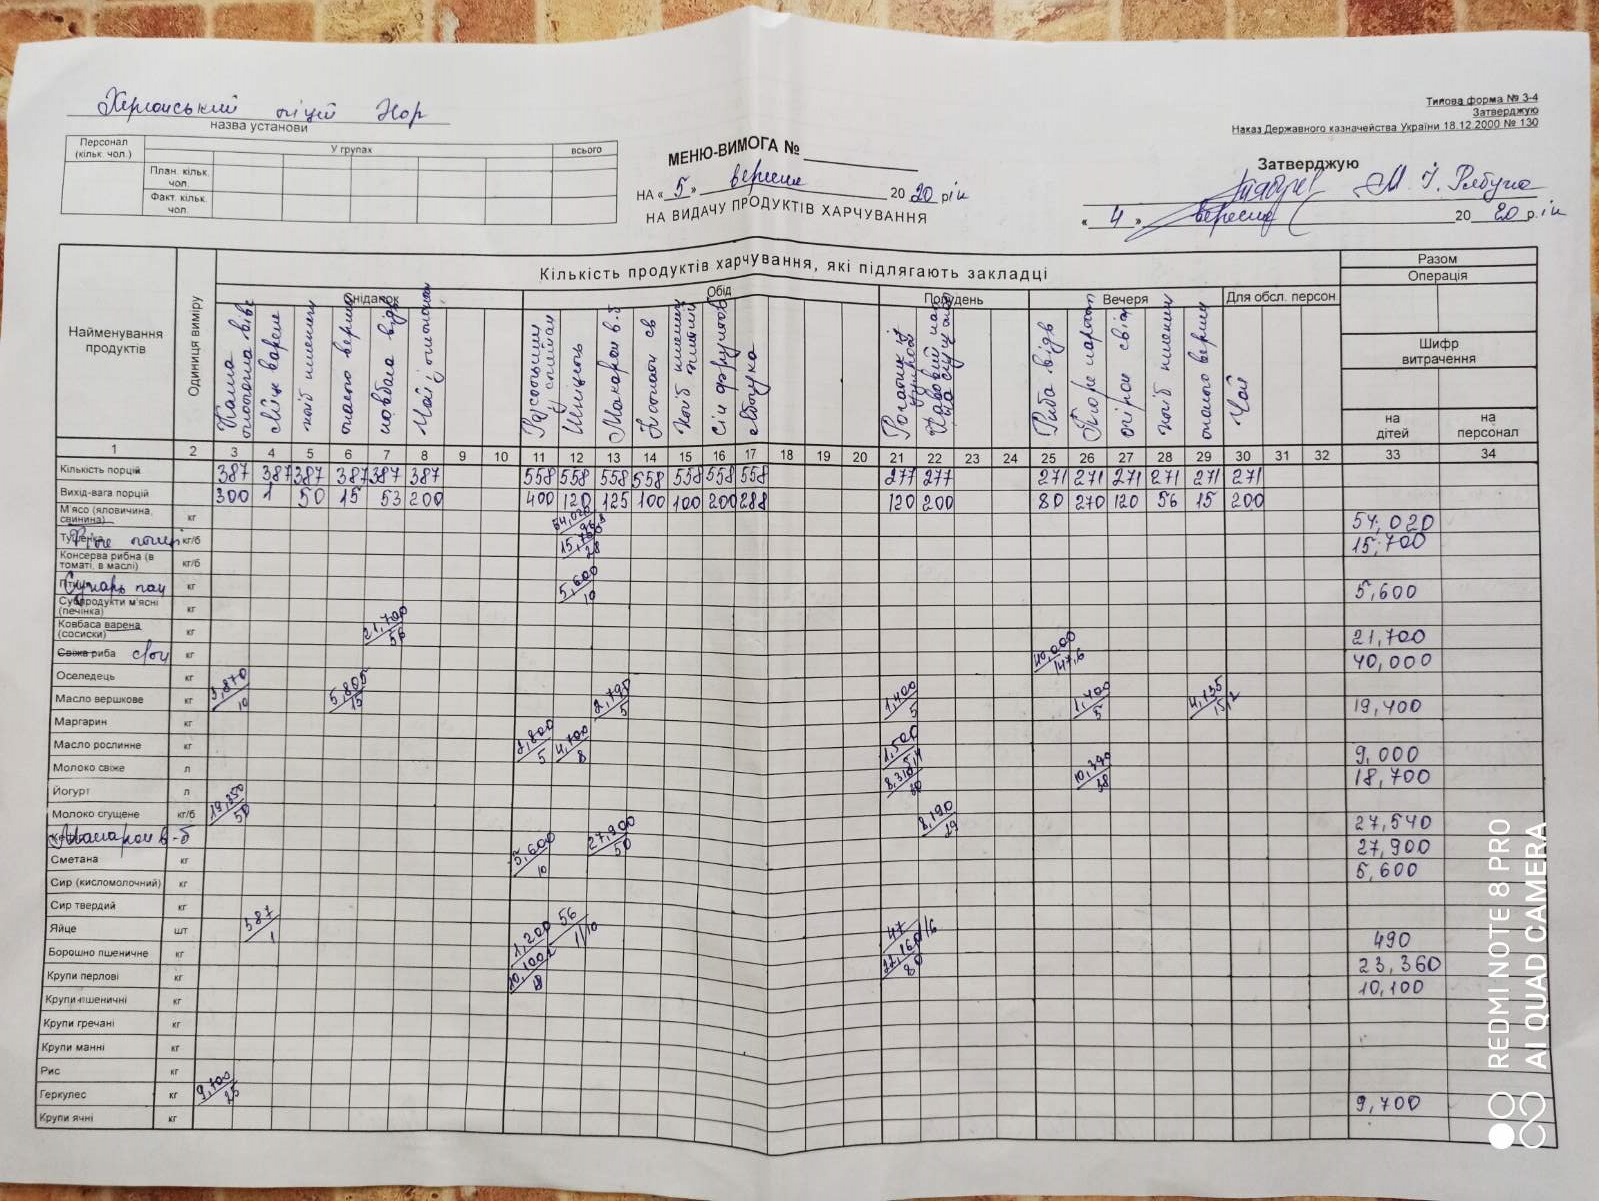 Херсонський ліцей
назва установи
Типова форма № З-4
Затверджую
Наказ Державного казначейства України 18.12.2000 № 130
Персонал (кільк. чол.)
У групах
всього
План. кільк. чол.
Факт. кільк. чол.
МЕНЮ-ВИМОГА №
НА « 5 » вересня 20 20 рік
НА ВИДАЧУ ПРОДУКТІВ ХАРЧУВАННЯ
Затверджую
« 4 » вересня 20 20 р.
Найменування продуктів
Одиниця виміру
Кількість продуктів харчування, які підлягають закладці
Разом
Операція
Сніданок
Обід
Полудень
Вечеря
Для обсл. персон
Шифр витрачення
на дітей
на персонал
Каша
яйце варене
хліб пшеничн
масло верш
ковбаса відв
Чай з лимоном
Розсольник
Шніцель
Макарон в-б
Хліб пшенич
Сік фруктов
яблука
Риба відв
Пюре картоп
огірок свіж
хліб пшенич
масло верш
Чай
1 2 3 4 5 6 7 8 9 10 11 12 13 14 15 16 17 18 19 20 21 22 23 24 25 26 27 28 29 30 31 32 33 34
Кількість порцій 387 387 387 387 387 387 558 558 558 558 558 558 558 277 277 271 271 271 271 271 271
Вихід-вага порцій 300 1 50 15 53 200 400 120 125 100 100 200 288 120 200 80 270 120 56 15 200
М'ясо (яловичина, свинина) кг 54,020 54,020
Тушенка кг/б 15,700 28 15,700
Консерва рибна (в томаті, в маслі) кг/б
Птиця Сухарь пан кг 5,600 10 5,600
Субпродукти м'ясні (печінка) кг
Ковбаса варена (сосиски) кг 21,700 56 21,700
Свіжа риба с/м кг 40,000 147,6 40,000
Оселедець кг
Масло вершкове кг 3,870 10 5,805 15 2,795 5 1,400 5 1,400 5 4,135 15,2 19,400
Маргарин кг
Масло рослинне кг 2,800 5 4,700 8 1,500 5,4 9,000
Молоко свіже л 8,310 30 10,390 38 18,700
Йогурт л
Молоко сгущене кг/б 19,350 50 8,190 29 27,540
Макарон в-б 27,900 50 27,900
Сметана кг 5,600 10 5,600
Сир (кисломолочний) кг
Сир твердий кг
Яйце шт 387 1 56 1/10 47 1/6 490
Борошно пшеничне кг 1,200 2 22,160 80 23,360
Крупи перлові кг 10,100 18 10,100
Крупи пшеничні кг
Крупи гречані кг
Крупи манні кг
Рис кг
Геркулес кг 9,700 25 9,700
Крупи ячні кг
REDMI NOTE 8 PRO
AI QUAD CAMERA